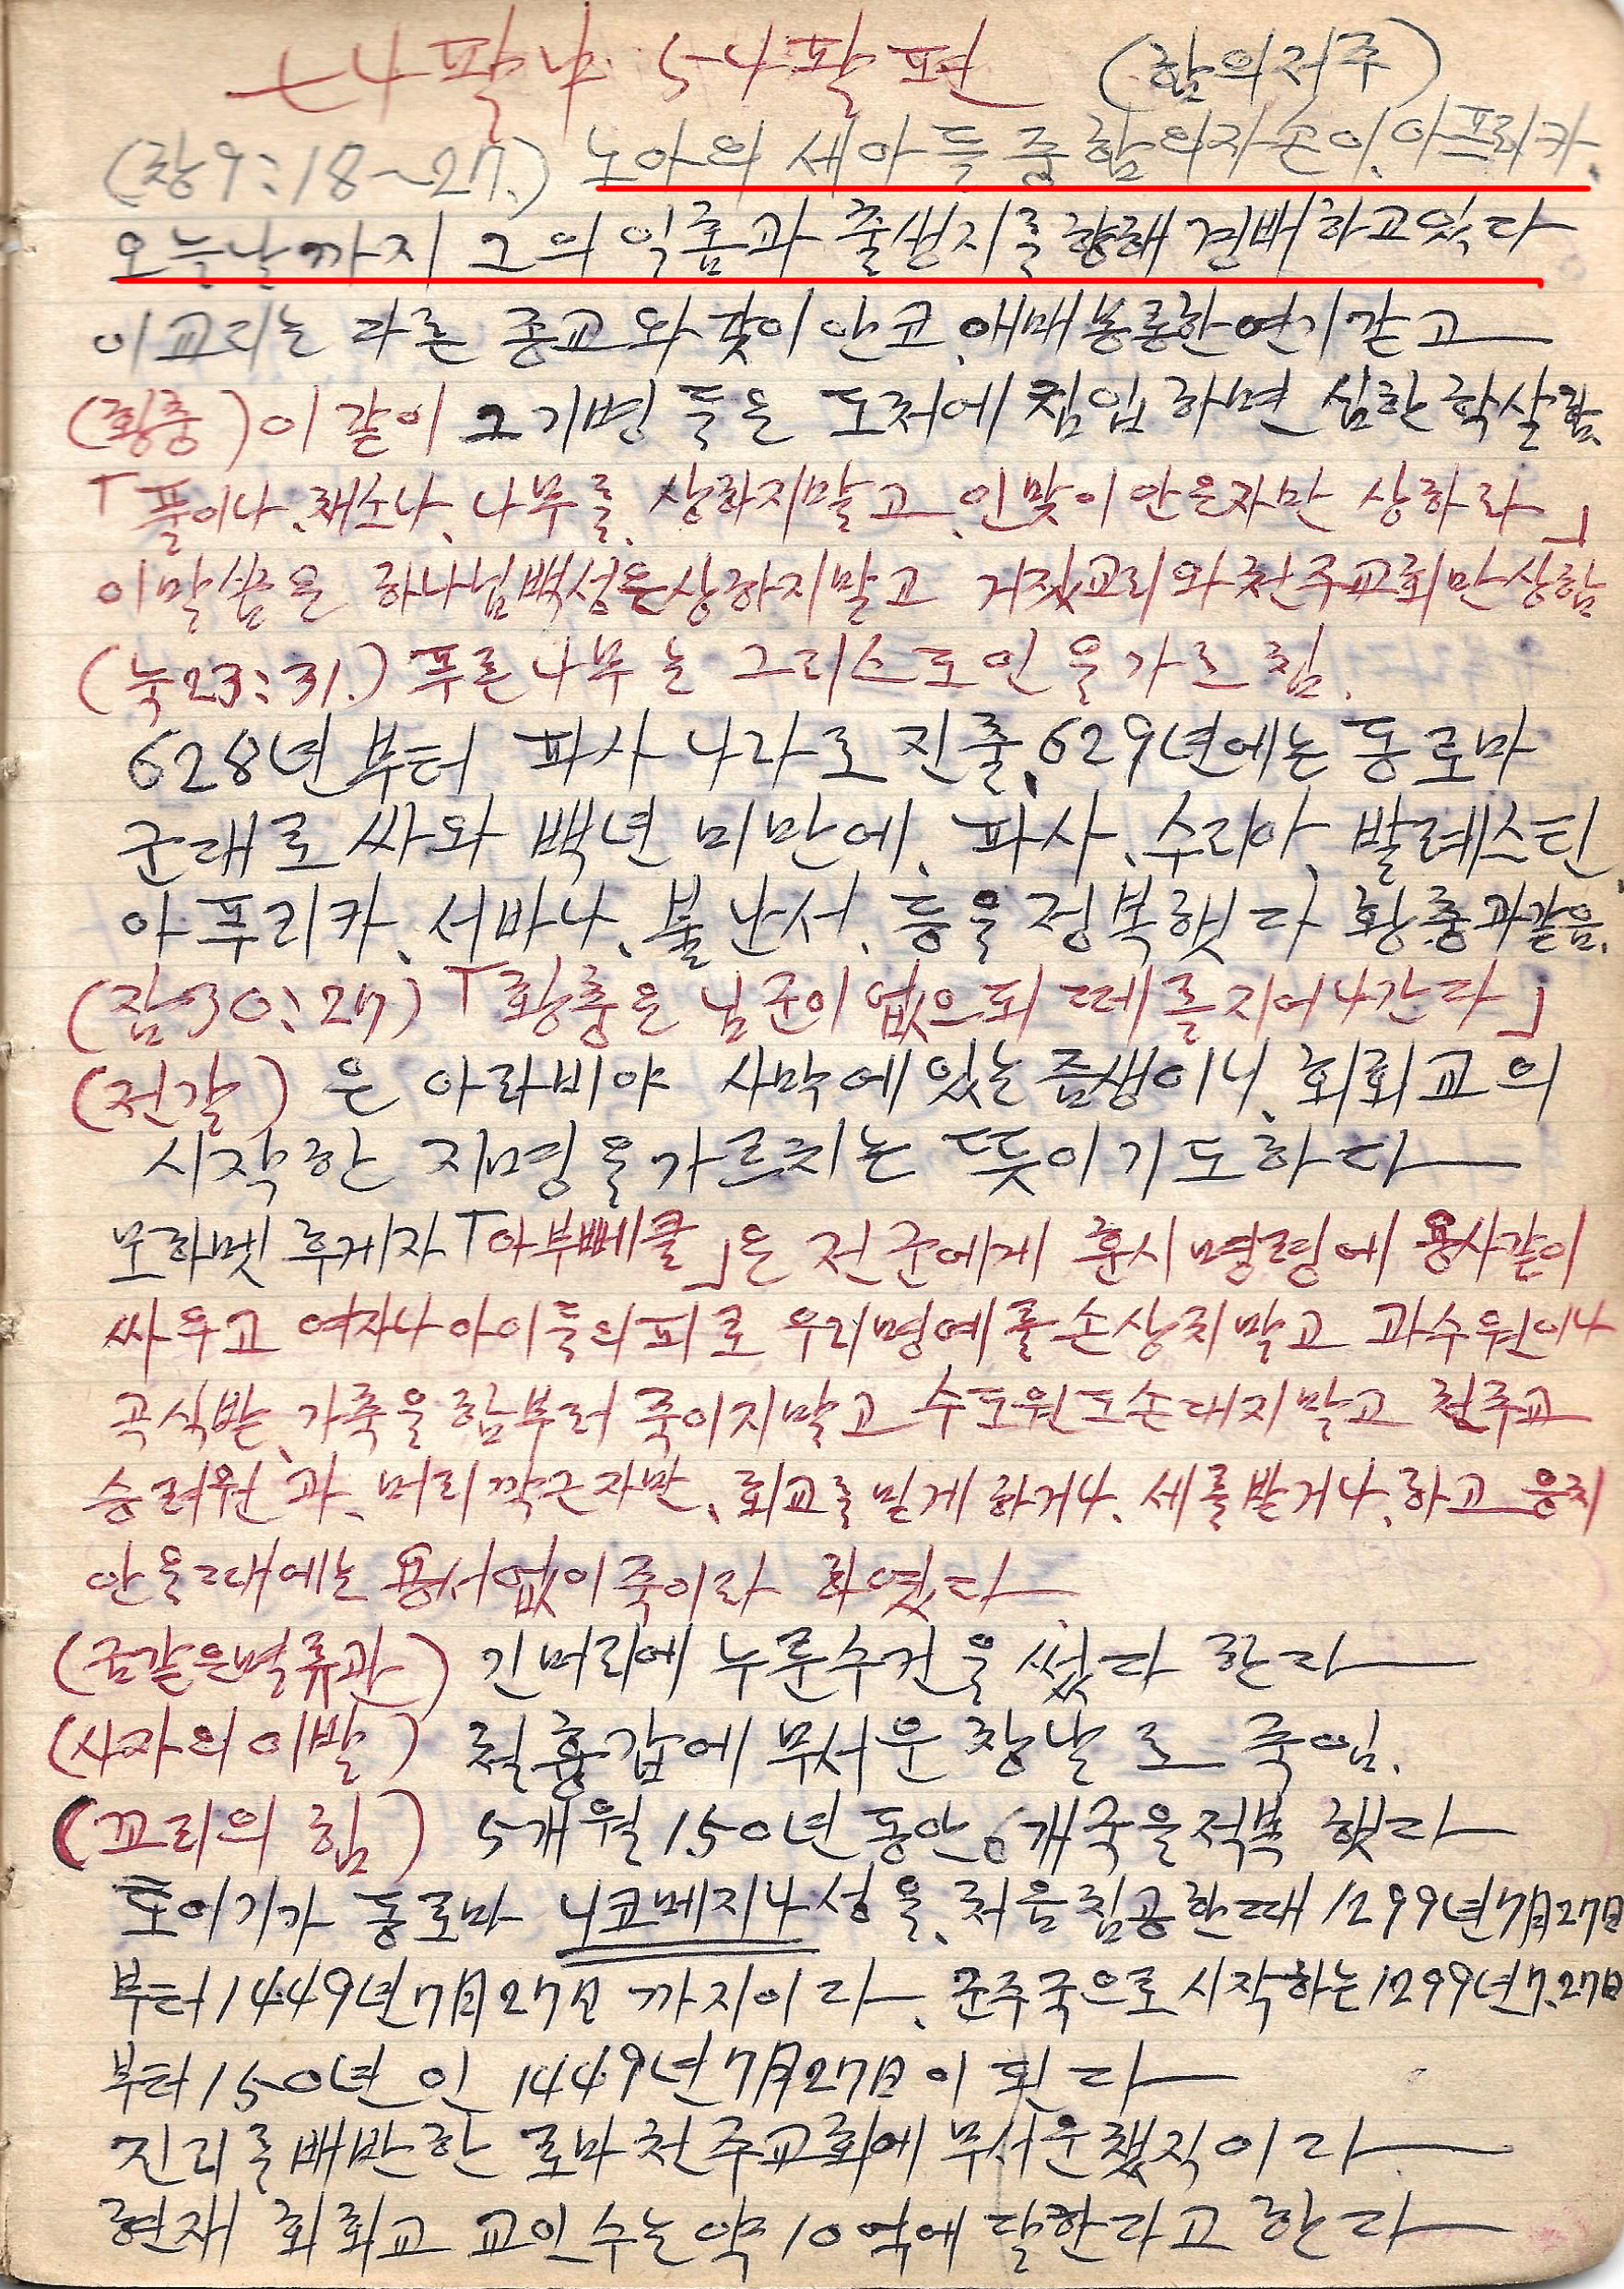 ㅡ나팔나 5나팔편 (함의저주)
(창9:18~27.) 노아의 세아들중함의자손이.아프리카.
오늘날까지 그의 익흠과 출생지를향해 경배하고있다
이교리는 다른 종교와 갗이안코.애매몽롱한연기같고
(황충)이같이 그기병들은 도처에침입하면 심한학살함.
「풀이나.채소나.나무를.상하지말고.인맞이안은자만 상하라」
이말씀은 하나님백성은상하지말고 거짓교리와천주교회만상함
(눅23:31.)푸른나무는 그리스도인을가르침.
628년부터 파사나라로 진출.629년에는동로마
군대로싸와 백년 미만에.파사.수리아.발레스틴.
아푸리카.서바나.불난서.등을정복햇다 황충과같음.
(잠30:27)「황충은 님군이없으되떼를지어나간다」
(전갈)은 아라비야 사막에있는즘생이니.회회교의
시작한 지명을가르치는 뜻이기도하다
모하멧후게자「아부뻬클」은 전군에게 훈시명령에 용사같이
싸우고 여자나아이들의피로 우리명예를손상치말고 과수원이나
곡식밭.가축을함부러죽이지말고 수도원도손대지말고 천주교
승려원과.머리깍근자만.회교를믿게하거나.세를받거나.하고응치
안을때에는용서없이죽이라 하였다
(금같은면류관) 긴머리에 누룬수건을썼다 한다
(사자의이발) 철흉갑에 무서운창날로 죽임.
(꼬리의 힘) 5개월150년동안6개국을정복 했다
토이기가 동로마 니코메지나성을.처음침공한때1299년7月27日
부터1449년7月27日까지이라.군주국으로시작하는1299년7.27日
부터150년인1449년7月27日이된다
진리를배반한 로마천주교회에무서운챗직이라
현재 회회교 교인수는약10억에달한다고한다